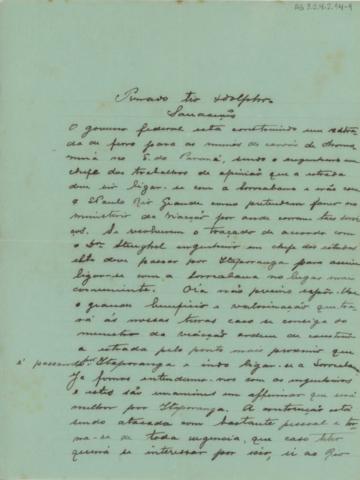 AG 3.2.4.2.94-1
Presado tio Adolpho.
Saudações
O governo federal está construindo um estra
da de ferro para as minas de carvão de
no E. do Paraná, sendo o engenheiro em
chefe dos trabalhos de opinião que a estrada
deve ir ligar-se com a Sorocabana e não com
a S Paulo Rio Grande como pretendem fazer no
ministerio da Viacção por onde correm
Se resolverem o traçado de accordo com
o Dr. engenheiro em chefe dos estudos
ella deve passar por Itaporanga para assim
ligar-se com a Sorocabana no logar mais
conveniente. Ora não preciso
o grande beneficio e valorisação que tra
rá ás nossas terras caso se consiga do
ministro da viacção ordem de construir
a estrada pelo ponto mais proximo que
é passando por Itaporanga e indo ligar-se a Sorocabana
Ja fomos entender-nos com os engenheiros
e estes são unanimes em affirmar que será
melhor por Itaporanga. A construção está
sendo atacada com bastante pessoal e tor
na-se de toda urgencia, que caso
queira se interessar por isso, ir ao Rio